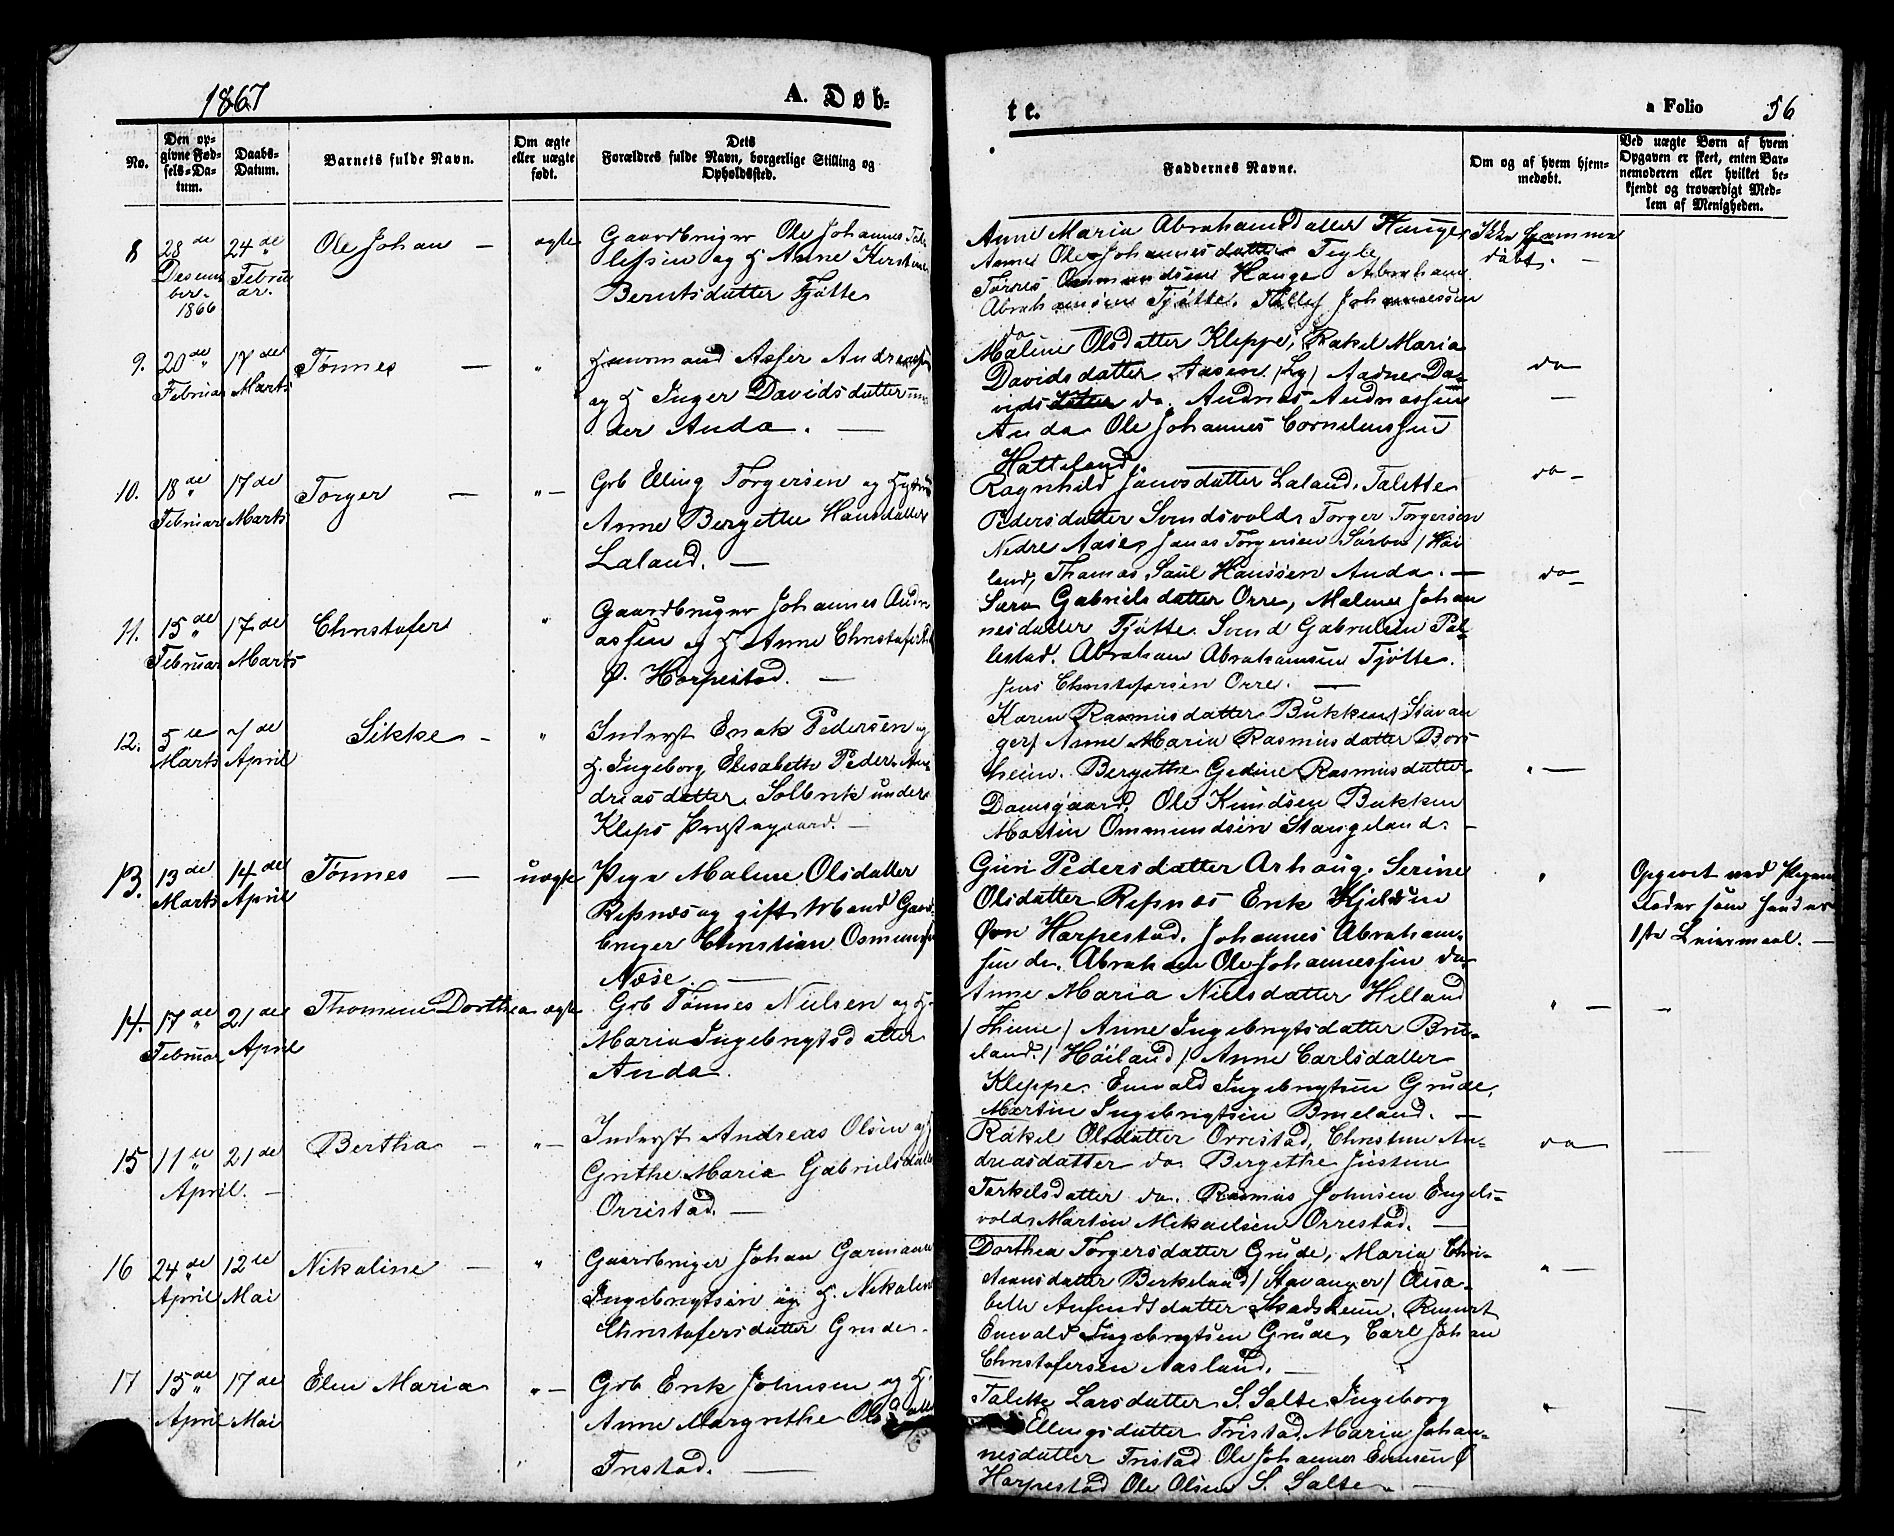 1867 A. Døb-
te.
a Folio 56
No.
Den op-
givne Fød-
sels-Da-
tum.
Daabs-
Datum.
Barnets fulde Navn.
Om ægte
eller uægte
født.
Dets
Forældres fulde Navn, borgerlige Stilling og
Opholdssted.
Faddernes Navne.
Om og af hvem hjem-
medøbt.
Ved uægte Børn af hvem
Opgaven er skeet, enten Bar-
nemoderen eller hvilket be-
kjendt og troværdigt Med-
lem af Menigheden.
8
28de
Desem
ber.
1866
24de
Febru
ar.
Ole Johan —
ægte
Gaardbruger Ole Johannes
og H Anne Kirstine
Berntsdatter Tjøtte
Anne Maria Abrahamsdatter Hauge
Anne Ole Johannesdatter Tegle
Tørres Ommundsen Hauge Abraham
Abrahamsen Tjøtte. Johannessen
do
Ikke hjemme
døbt. —
9.
20de
Februar
17de
Marts
Tønnes —
"
Huusmand Asser Andreassen
og H Inger Davidsdatter un
der Anda. —
Maline Olsdatter Kleppe, Rakel Maria
Davidsdatter Aasen /Ly/ Aadne Da-
vids do. Andreas Andreassen
Anda Ole Johannes Cornelussen
Hatteland
do
—
10.
18de
Februar
17de
Marts
Torger —
" —
Grb Elling Torgersen og Hustru
Anne Bergitte Hansdatter
Laland. —
Ragnhild Jansdatter Laland. Talette
Pedersdatter Svendsvold Torger Torgersen
Nedre Aase, Jonas Torgersen Sørbø /Høi
land/ Thomas Saul Hanssen Anda. —
do —
11.
15de
Februar
17de
Marts
Christofer
"
Gaardbruger Johannes Andre
assen og H Anne Christofersd
Ø. Harpestad. —
Sara Gabrielsdatter Orre, Malene Johan
nesdatter Tjøtte. Svend Gabrielsen Pal-
lestad. Abraham Abrahamsen Tjøtte.
Jens Christofersen Orre. —
do —
12.
5te
Marts
7de
April
Sikke —
"
Inderst Enok Pedersen og
H. Ingeborg Elisabeth Peder An
dreasdatter Solbrek under
Klepp Præstegaard. —
Karen Rasmusdatter Bukken /Stavan
ger/ Anne Maria Rasmusdatter Bors
heim. Bergithe Gedine Rasmusdatter
Damsgaard. Ole Knudsen Bukken
Martin Ommundsen Stangeland. —
" —
13.
13de
Marts
14de
April
Tønnes —
uægte
Pige Malene Olsdatter
Refsnes og gift Mand Gaard
bruger Christian Osmundsen
Næse. —
Guri Pedersdatter Arhaug. Serine
Olsdatter Refsnæs Erik Kjeldsen
Øvre Harpestad. Johannes Abraham-
sen do. Abraham Ole Johannessen do
"
Opgivet ved Pigens
Fader som hendes
1ste Leiermaal. —
14.
17de
Februar
21de
April
Thomine Dorthea
ægte
Grb Tønnes Nielsen og H.
Maria Ingebrigtsdatter
Anda.
Anne Maria Nielsdatter Helland
/Thime/ Anne Ingebrigtsdatter Brue-
land. /Høiland/ Anne Carlsdatter
Kleppe. Enevald Ingebrigtsen Grude,
Martin Ingebrigtsen Brueland. —
" —
"
15
11te
April. —
21de
Bertha —
" —
Inderst Andreas Olsen og H
Grethe Maria Gabrielsdatter
Orrestad. —
Rakel Olsdatter Orrestad, Christine An-
dreasdatter do. Bergithe Justine
Torkelsdatter do. Rasmus Johnsen Engels-
vold, Martin Mikaelsen Orrestad. —
do —
—
16
24de
April
12te
Mai
Nikoline —
"
Gaardbruger Johan Garmann
Ingebrigtsen og H. Nikoline
Christofersdatter Grude.
Dorthea Torgersdatter Grude, Maria Chri-
stiansdatter Berkeland /Stavanger/ Elisa-
beth Anfindsdatter Skadsheim,
Enevald Ingebrigtsen Grude, Carl Johan
Christofersen Aasland. —
" —
17
15de
April
17de
Mai
Elen Maria
" —
Grb Erik Johnsen og H.
Anne Margrethe Olsdatter
Fristad. —
Talette Larsdatter S. Salte Ingeborg
Ellingsdatter Fristad, Maria Johan-
nesdatter Fristad Ole Johannes Ø
Harpestad Ole Olsen S. Salte. —
"
—